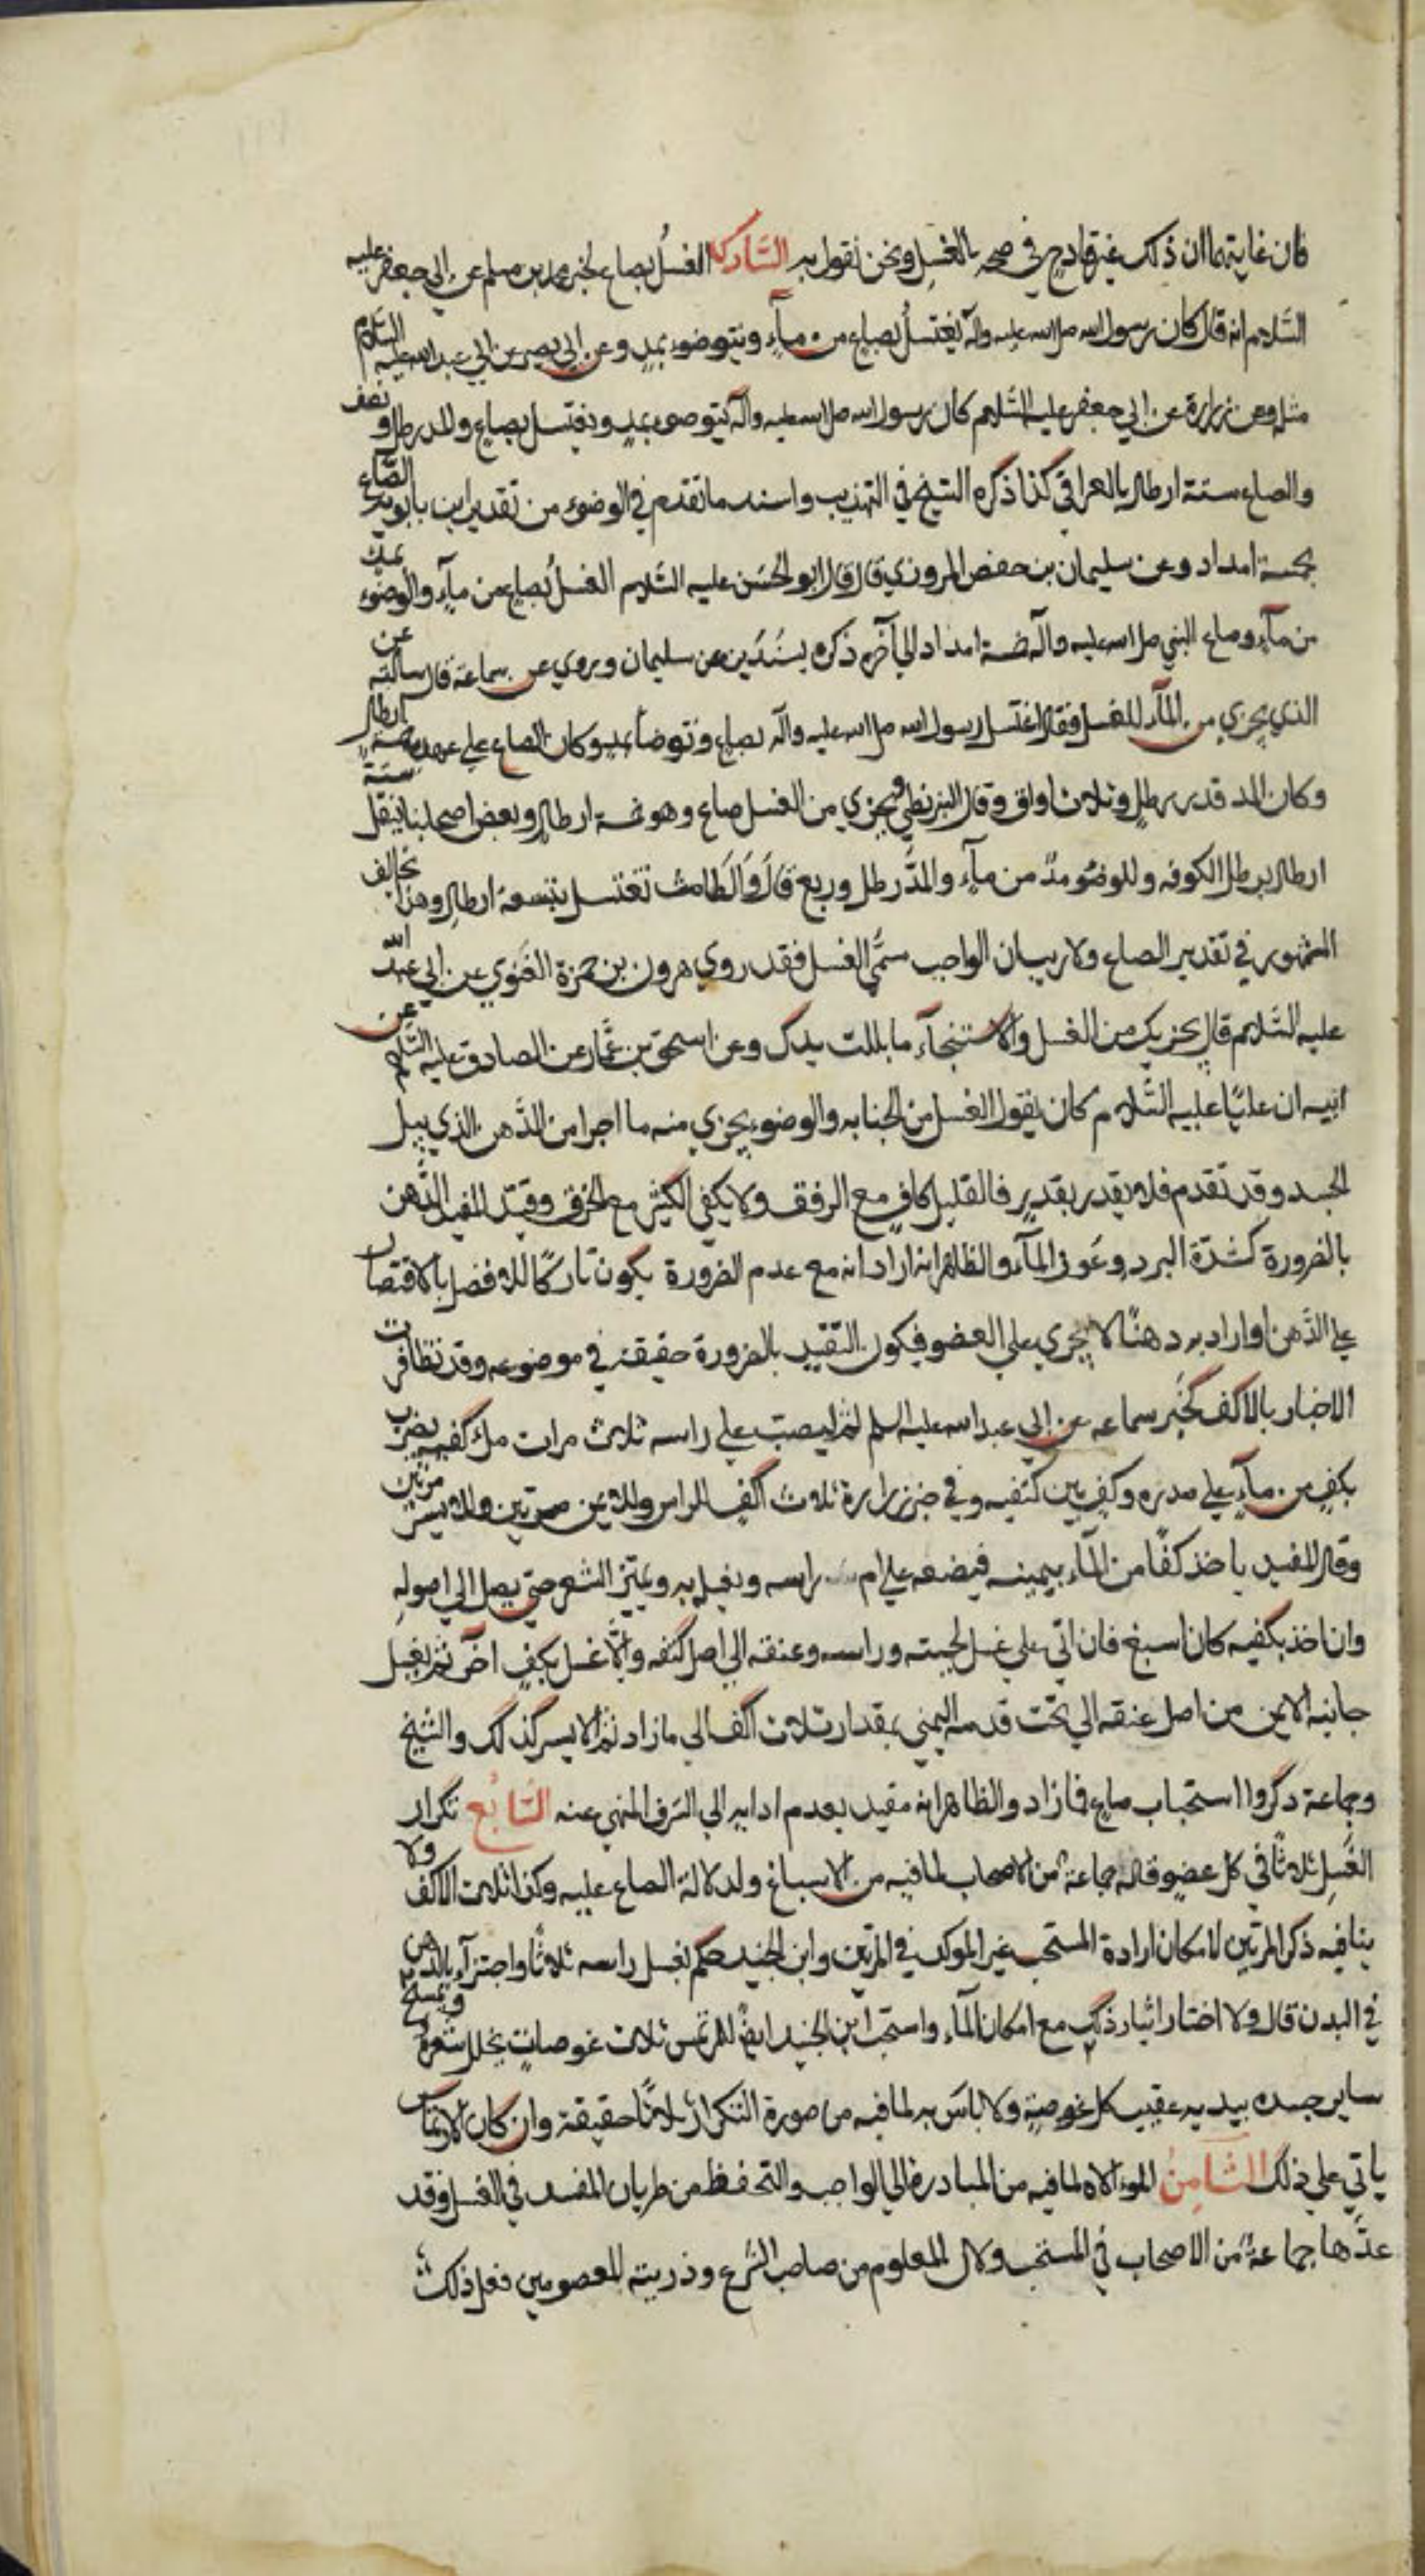 فان غايتهما ان ذلك غير قادح في صحة الغسل ونحن نقول به السادسة الغسل بصاع لخبر محمد بن مسلم عن ابي جعفر عليه
السّلام انه قال كان رسول الله صلى الله عليه وآله يغتسل بصاع من مآء ويتوضوء بمد وعن ابي بصير عن ابي عبد الله عليه السّلام
مثله وعن زرارة عن ابي جعفر عليه السّلام كان رسول الله صلى الله عليه وآله يتوضوء بمدٍ ويغتسل بصاع والمد رطل ونصف
والصاع ستة ارطال بالعراقي كذا ذكره الشيخ في التهذيب واسند ما تقدم في الوضوء من تقدير ابن بابويه الصّاع
بخمسة امداد وعن سليمان بن حفص المروزي قال قال ابو الحسن عليه السّلام الغسل بصاع من مآء والوضوء بمد
من مآء وصاع النبي صلى الله عليه وآله خمسة امداد الى آخره ذكره بسندين عن سليمان وروي عن سماعة قال سألته عن
الذي يجزي من المآء للغسل فقال اغتسل رسول الله صلى الله عليه وآله بصاع وتوضأ بمد وكان الصاع على عهده خمسة ارطال
وكان المد قدر رطل وثلاث اواق وقال البزنطي ويجزي من الغسل صاع وهو خمسة ارطال وبعض اصحابنا ينقل ستة
ارطال برطل الكوفه وللوضوء مدّ من مآء والمدّ رطل وربع قال والطامث تغتسل بتسعة ارطال وهذا يخالف
المشهور في تقدير الصاع ولا ريب ان الواجب مسمّي الغسل فقد روي هرون بن حمزة الغنوي عن ابي عبد الله
عليه السّلام قال يجزيك من الغسل والاستنجآء ما بللت يدك وعن اسحق بن عمّار عن الصادق عليه السّلام عن
ابيه ان عليّا عليه السّلام كان يقول الغسل من الجنابه والوضوء يجزي منه ما اجرا من الدّهن الذي يبل
الجسد وقد تقدم فلا يقدر بقدير فالقليل كاف مع الرفق ولا يكفي الكثير مع الخرق وقيّد المفيد الدّهن
بالضرورة كشدّة البرد وعوز المآء والظاهر انه اراد انه مع عدم الضرورة يكون تاركًا للافضل بالاقتصار
على الدّهن او اراد به دهنًا لا يجري على العضو فيكون التقييد بالضرورة حقيقة في موضوعه وقد تظافرت
الاخبار بالاكف كخبر سماعه عن ابي عبد الله عليه السلم ثم ليصب على راسه ثلاث مرات ملء كفيه يضرب
بكف من مآء على صدره وكف بين كتفيه وفي خبر زرارة ثلاث اكف للراس وللايمن مرتين وللايسر مرتين
وقال المفيد ياخذ كفّا من المآء بيمينه فيضعه على ام راسه ويغسله به ويميّز الشعر حتى يصل الى اصوله
وان اخذ بكفيه كان اسبغ فان اتى على غسل لحيته وراسه وعنقه الى اصل كتفه والّا غسل بكف آخر ثم يغسل
جانبه الايمن من اصل عنقه الى تحت قدمه اليمني بمقدار ثلاث اكف الى ما زاد ثم الايسر كذلك والشيخ
وجماعة ذكروا استحباب صاع فما زاد والظاهر انه مقيد بعدم ادايه الي السّرف المنهي عنه السّابع تكرار
الغسل ثلاثًا في كل عضو قاله جماعة من الاصحاب لما فيه من الاسباغ ولدلالة الصاع عليه وكذا ثلاث الاكف ولا
ينافيه ذكر المرتين لامكان ارادة المستحب غير الموكد في المرّتين وابن الجنيد حكم بغسل راسه ثلاثًا واجتزآ بالدهن
في البدن قال ولا اختار ايثار ذلك مع امكان المآء واستحب ابن الجنيد ايضًا للمرتمس ثلاث غوصات يخلل شعره ويمسح
ساير جسده بيديه عقيب كل غوصة ولا باس به لما فيه من صورة التكرار ثلاثًا حقيقة وان كان الارتماس
ياتي على ذلك الثّامن الموالاة لما فيه من المبادرة الى الواجب والتحفظ من طريان المفسد في الغسل وقد
عدّها جماعة من الاصحاب في المستحب ولان المعلوم من صاحب الشرع وذريته المعصومين فعل ذلك